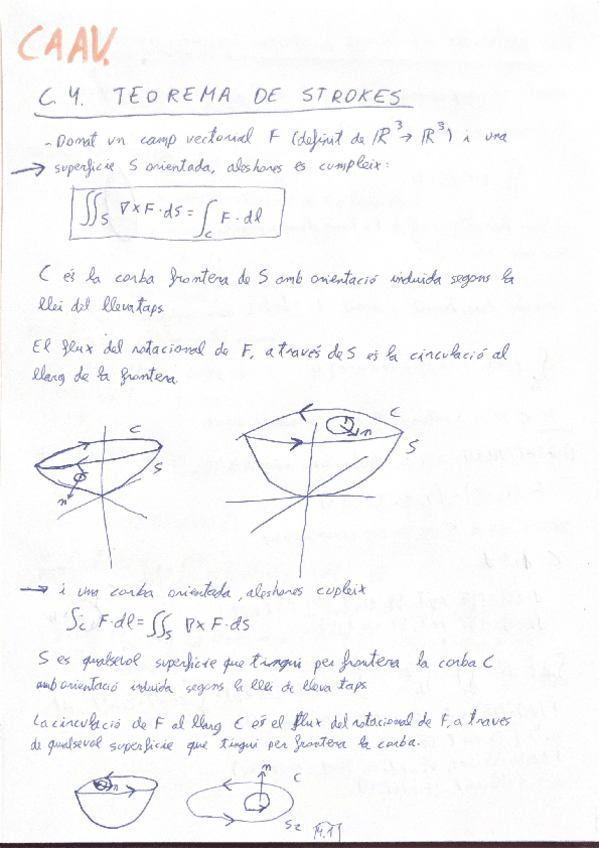 CAAV.
C.4. TEOREMA DE STROKES
- Donat un camp vectorial F (definit de ℝ³→ ℝ³) i una
→ superfície S orientada, aleshores es cumpleix:
∬S ∇×F·ds = ∫C F·dl
C és la corba frontera de S amb orientació induida segons la
llei del llevataps.
El flux del rotacional de F, a través de S és la circulació al
llarg de la frontera.
C
C
S
S
n
n
→ i una corba orientada, aleshores cupleix
∫C F·dl = ∬S ∇×F·ds
S es qualsevol superfície que tingui per frontera la corba C
amb orientació induida segons la llei de lleva taps.
La circulació de F al llarg C és el flux del rotacional de F, a través
de qualsevol superfície que tingui per frontera la corba.
n
n
C
S2
14.1